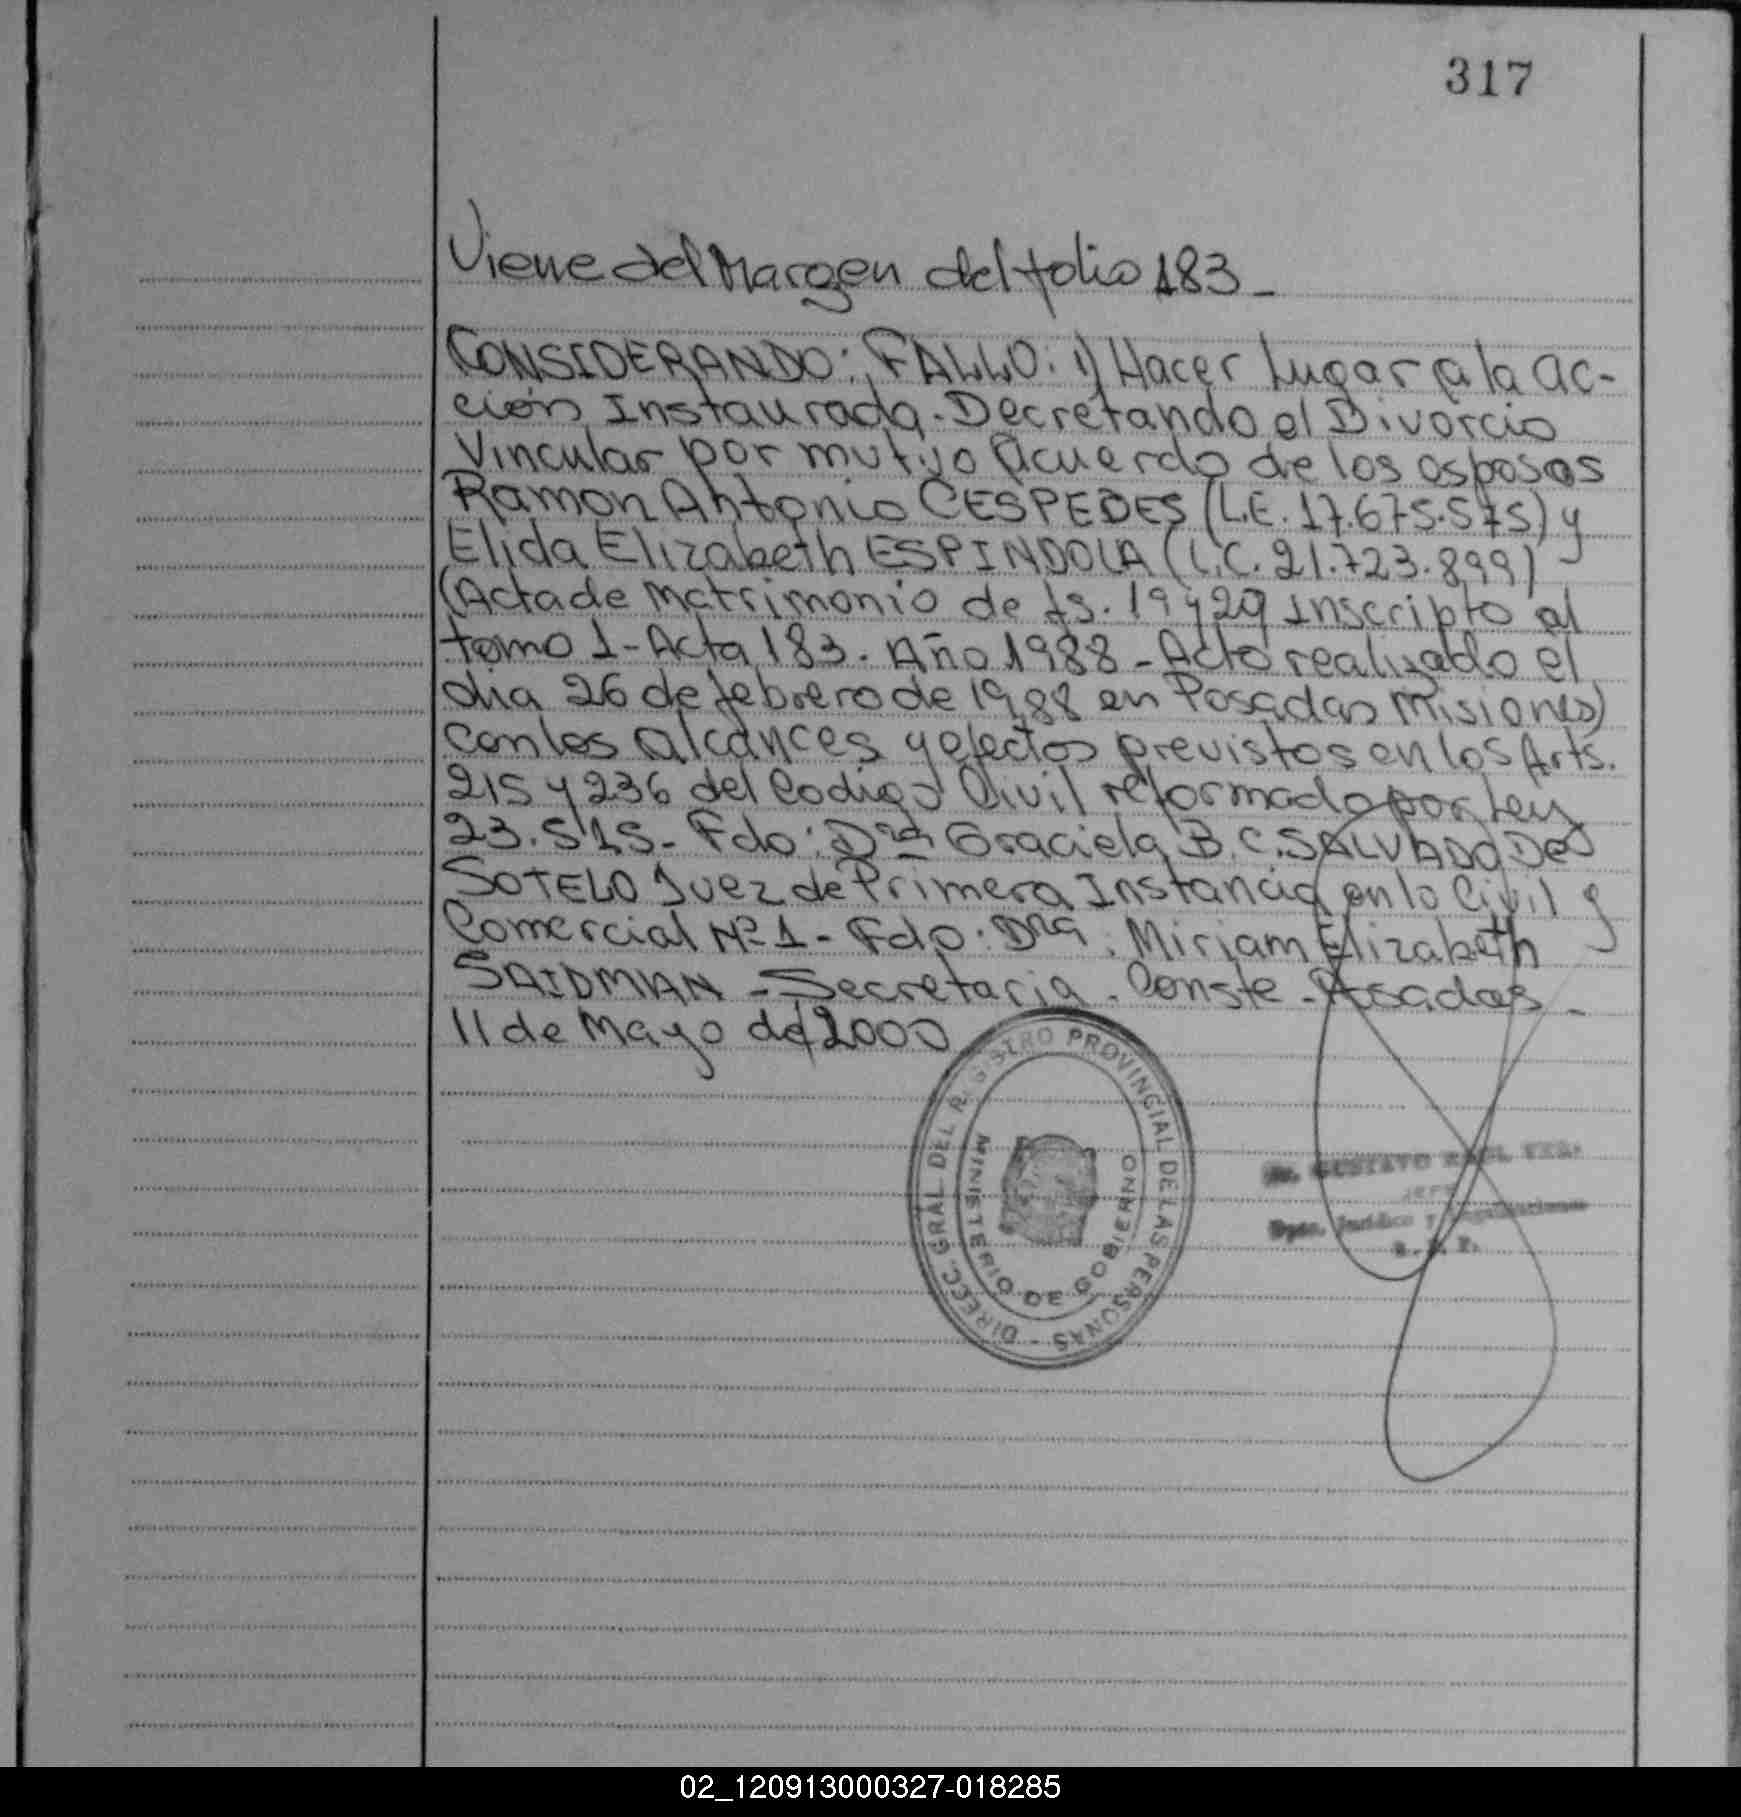 317
Viene del Margen del folio 183_
CONSIDERANDO: FALLO: 1) Hacer Lugar a la ac-
ción Instaurada. Decretando el Divorcio
Vincular por mutuo acuerdo de los esposos
Ramon Antonio CESPEDES (L.E. 17.675.575) y
Elida Elizabeth ESPINDOLA (L.C. 21.723.899)
(Acta de Matrimonio de fs. 19 y 20 Inscripto al
tomo 1 - Acta 183. Año 1988 - Acto realizado el
dia 26 de febrero de 1988 en Posadas Misiones)
con los alcances y efectos previstos en los Arts.
215 y 236 del Codigo Civil reformado por Ley
23.515 - Fdo: Dra Graciela B. C. SALVADO De
SOTELO Juez de Primera Instancia en lo Civil y
Comercial Nº 1 - Fdo: Dra. Miriam Elizabeth
SAIDMAN - Secretaria. Conste. Posadas -
11 de Mayo de 2000
DIRECC. GRAL DEL REGISTRO PROVINCIAL DE LAS PERSONAS -
MINISTERIO DE GOBIERNO
GUSTAVO
JEFE
02_120913000327-018285